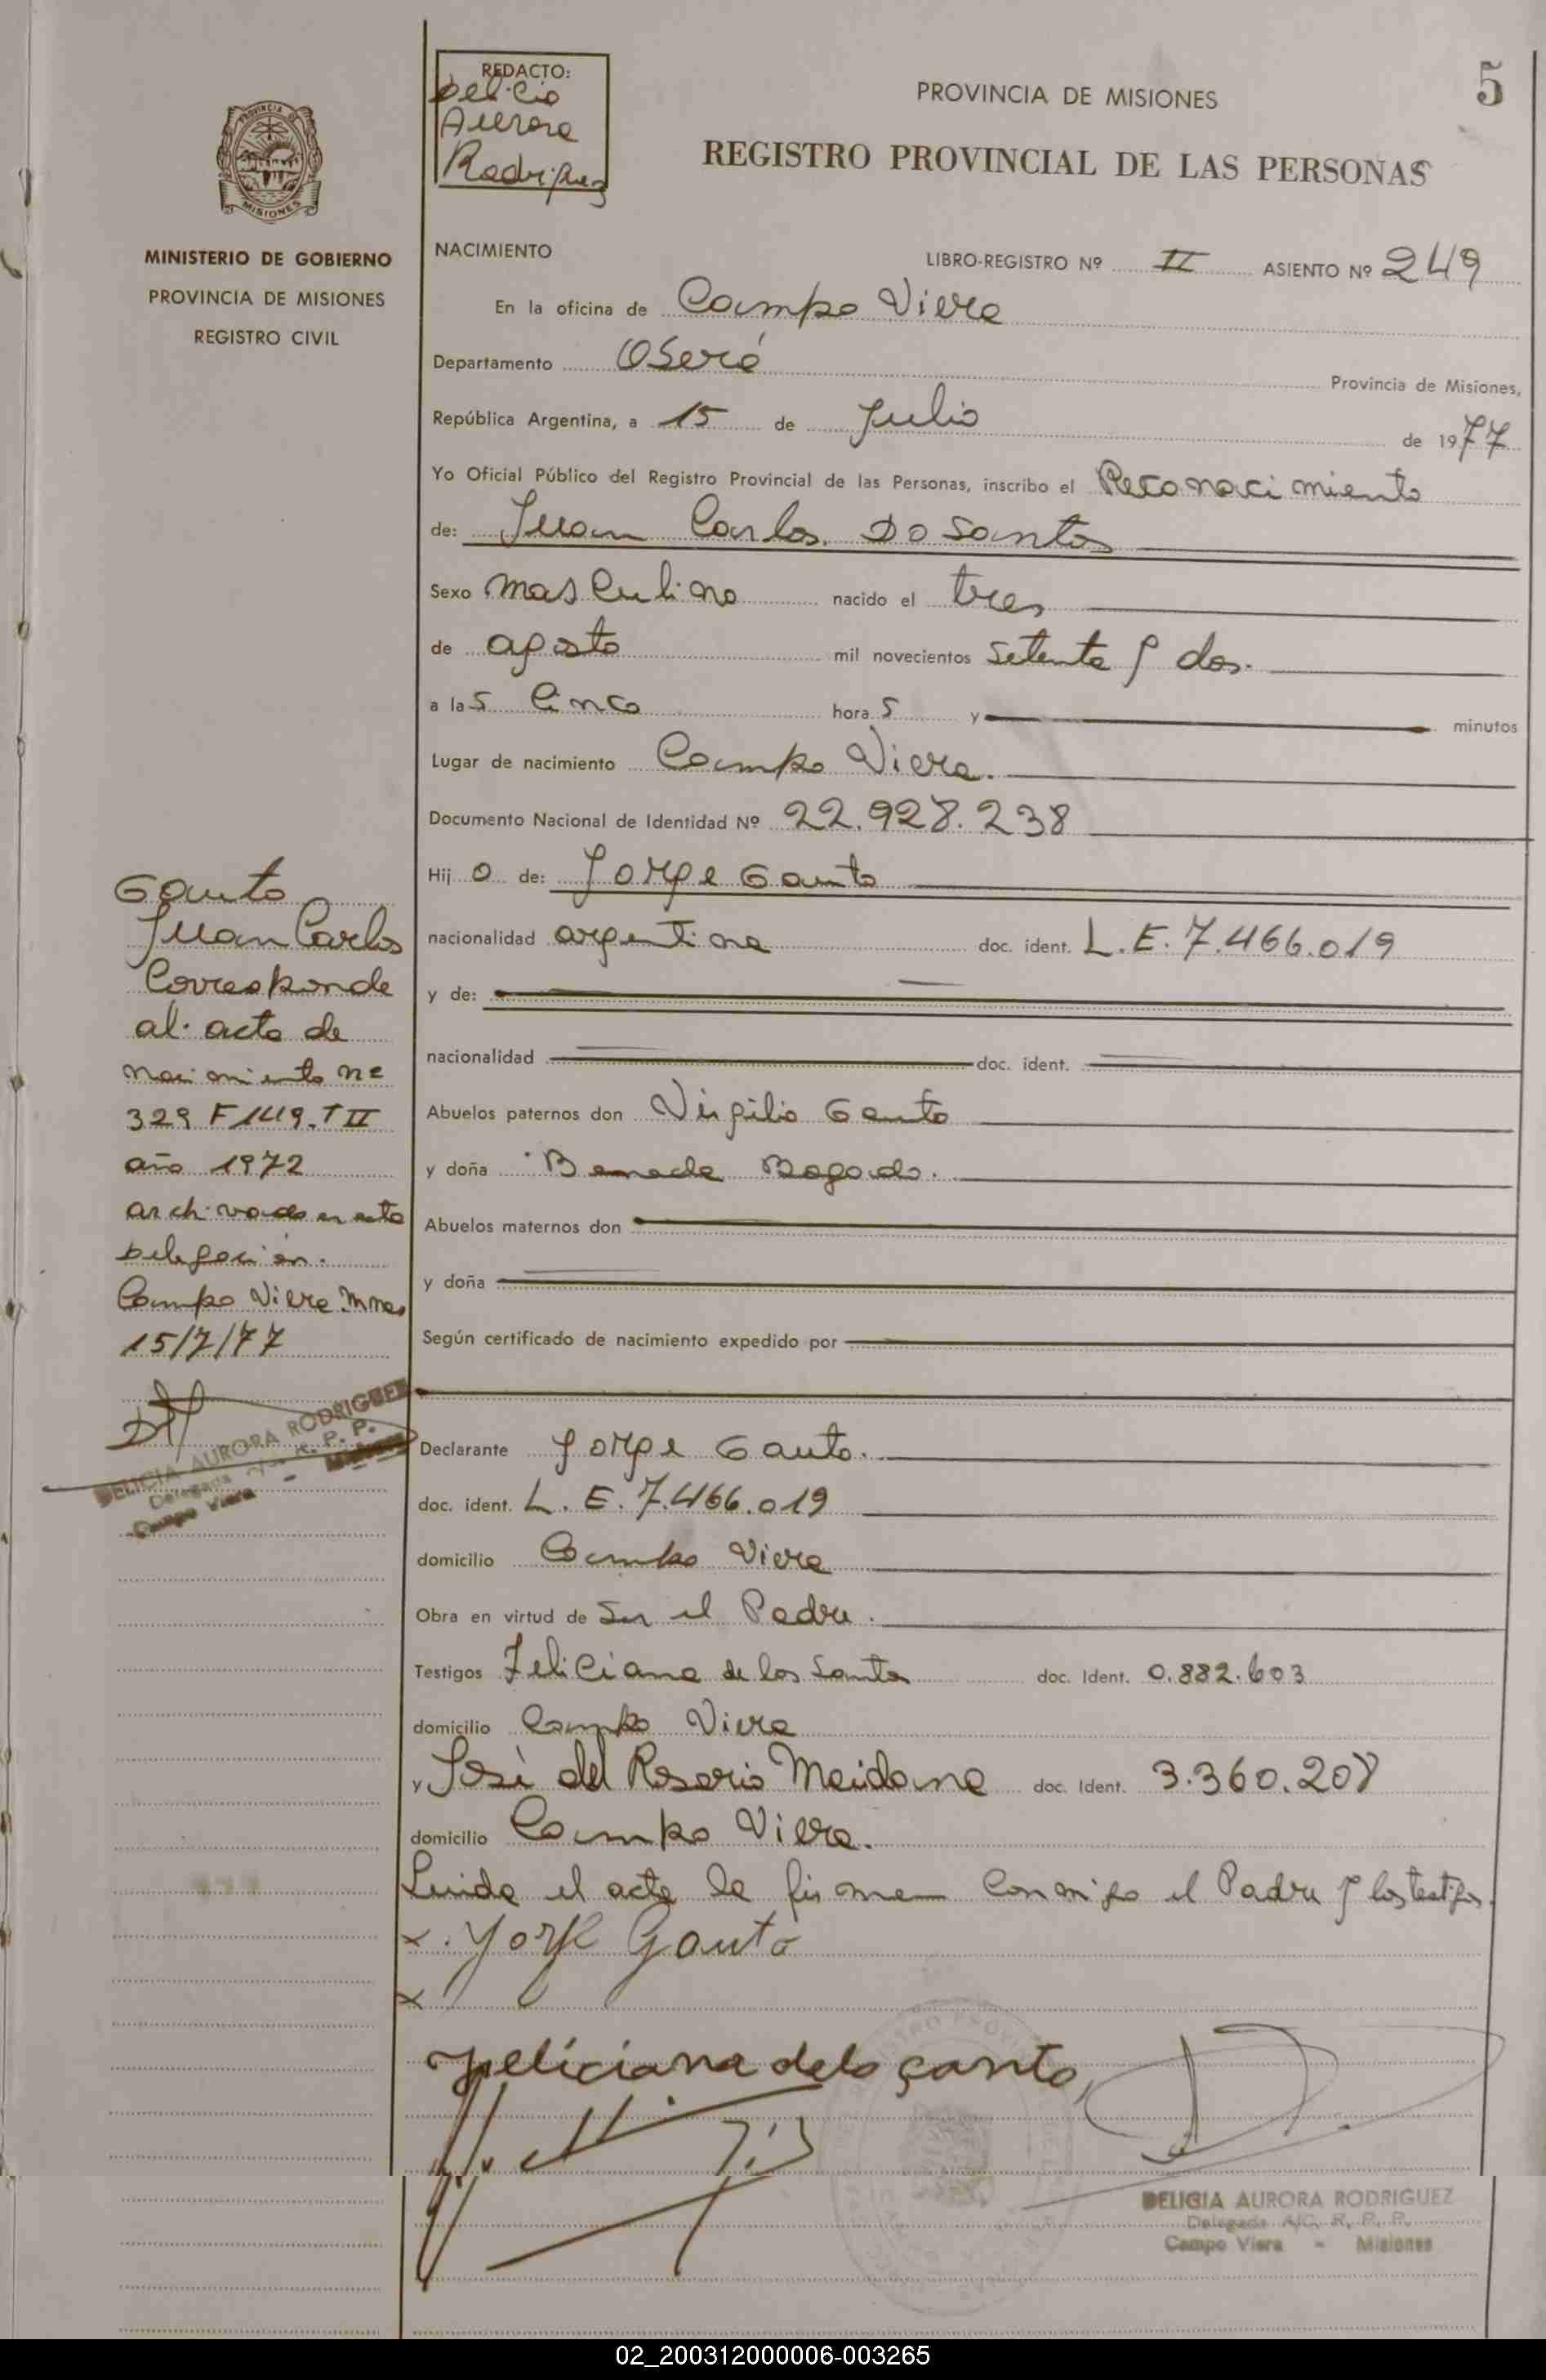 REDACTO:
Delicia
Aurora
Rodriguez
PROVINCIA DE MISIONES
5
REGISTRO PROVINCIAL DE LAS PERSONAS
MISIONES
MINISTERIO DE GOBIERNO
PROVINCIA DE MISIONES
REGISTRO CIVIL
NACIMIENTO
LIBRO-REGISTRO Nº II ASIENTO Nº 249
En la oficina de Campo Viera
Departamento Oberá Provincia de Misiones,
República Argentina, a 15 de Julio de 1977
Yo Oficial Público del Registro Provincial de las Personas, inscribo el Reconocimiento
de: Juan Carlos Do Santos
Sexo masculino nacido el tres
de agosto mil novecientos setenta y dos.
a las cinco horas y minutos
Lugar de nacimiento Campo Viera.
Documento Nacional de Identidad Nº 22.928.238
Hijo de: Jorge Gauto
nacionalidad argentina doc. ident. L.E. 7.466.019
y de:
nacionalidad doc. ident.
Abuelos paternos don Virgilio Gauto
y doña Bogado.
Abuelos maternos don
y doña
Según certificado de nacimiento expedido por
Declarante Jorge Gauto.
doc. ident. L. E. 7.466.019
domicilio Campo Viera
Obra en virtud de Ser el Padre.
Testigos Feliciana de los Santos doc. Ident. 0.882.603
domicilio Campo Viera
y José del Rosario Meidana doc. Ident. 3.360.208
domicilio Campo Viera.
Leida el acta la firman conmigo el Padre y los testigos.
x. Jorge Gauto
x
Feliciana delo santo
DELICIA AURORA RODRIGUEZ
Delegada A/C. R. P. P.
Campo Viera - Misiones
Gauto
Juan Carlos
Corresponde
al acta de
nacimiento nº
329 F 149. T II
año 1972
archivado en esta
Delegación.
Campo Viera Mnes
15/7/77
DELICIA AURORA RODRIGUEZ
Delegada A/C R. P. P.
Campo Viera - Misiones
02_200312000006-003265